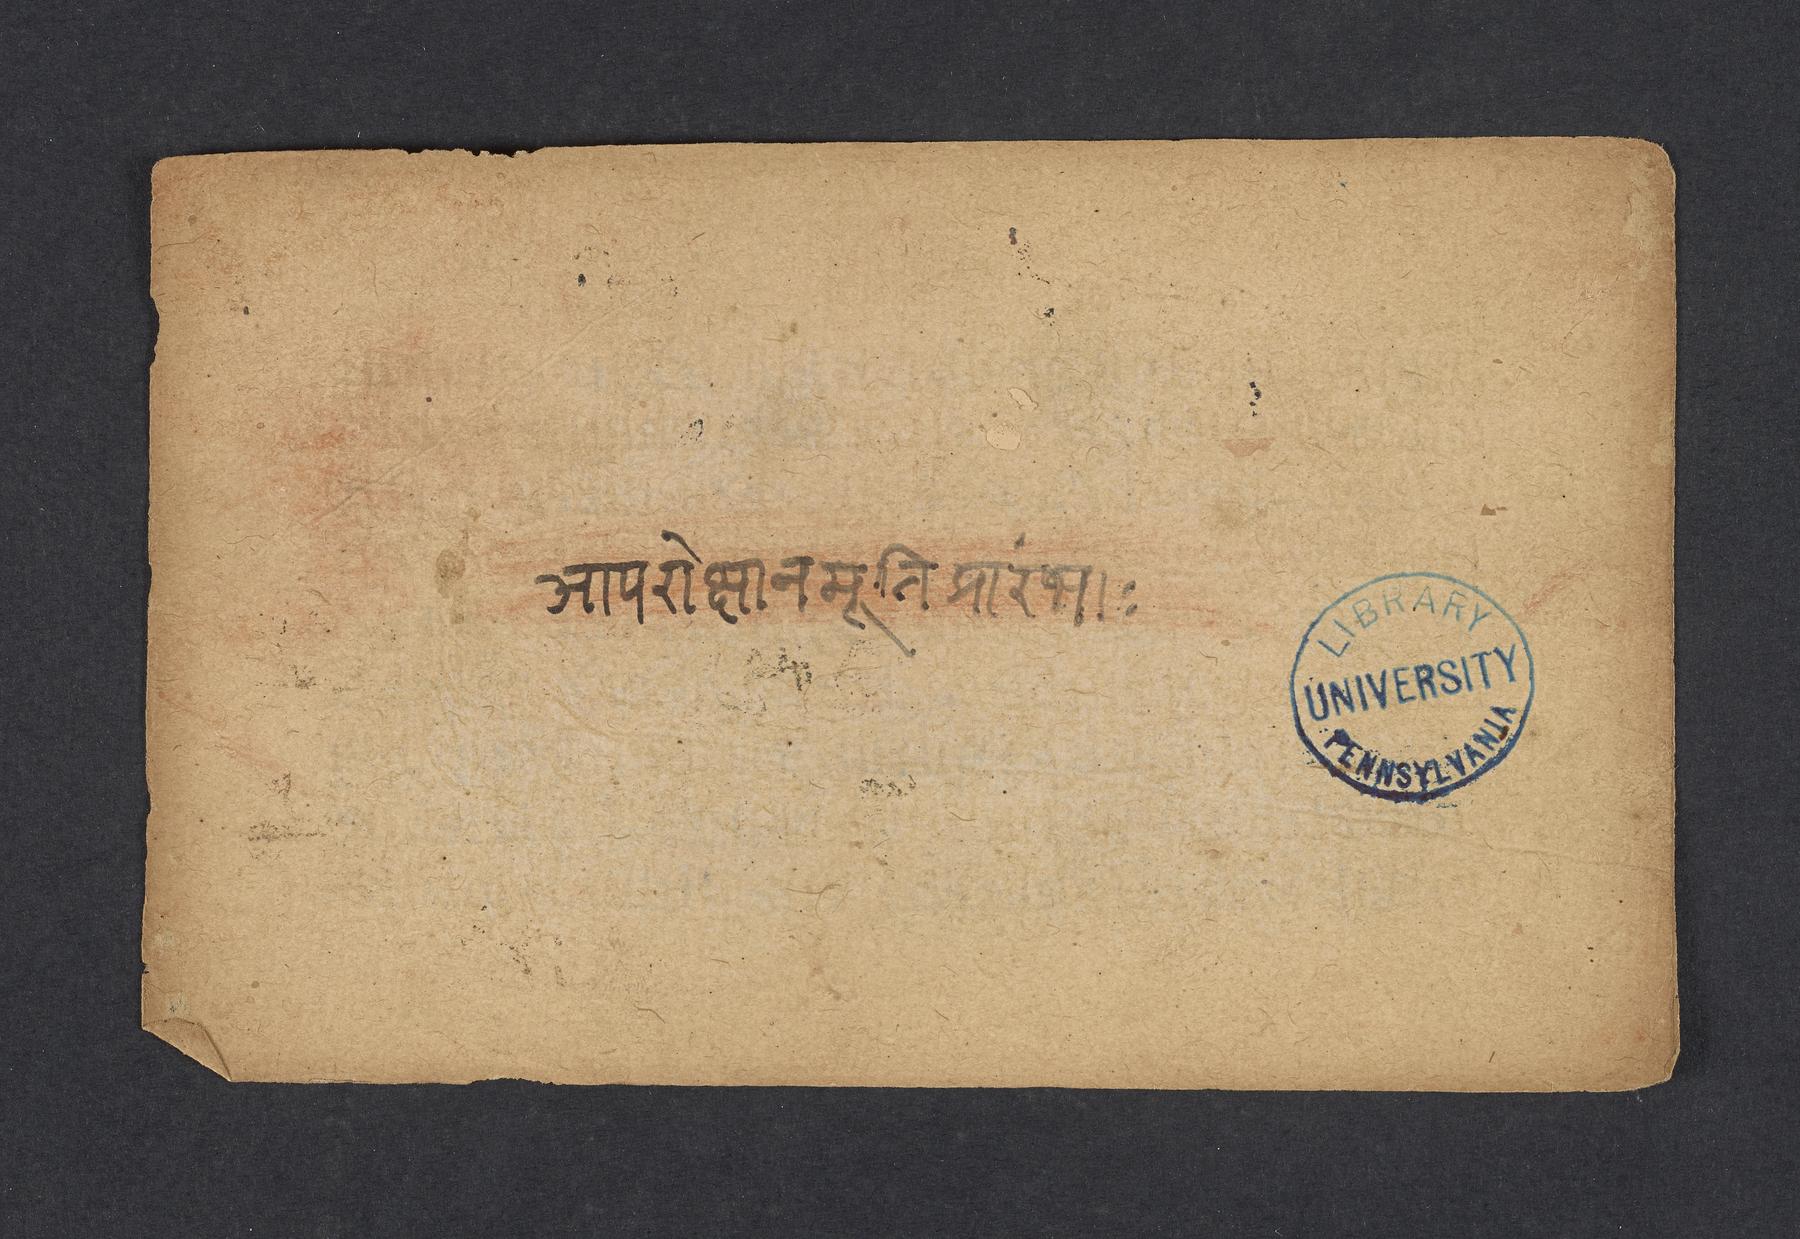 आपरोक्षानमूति प्रारंभाः
LIBRARY
UNIVERSITY
PENNSYLVANIA